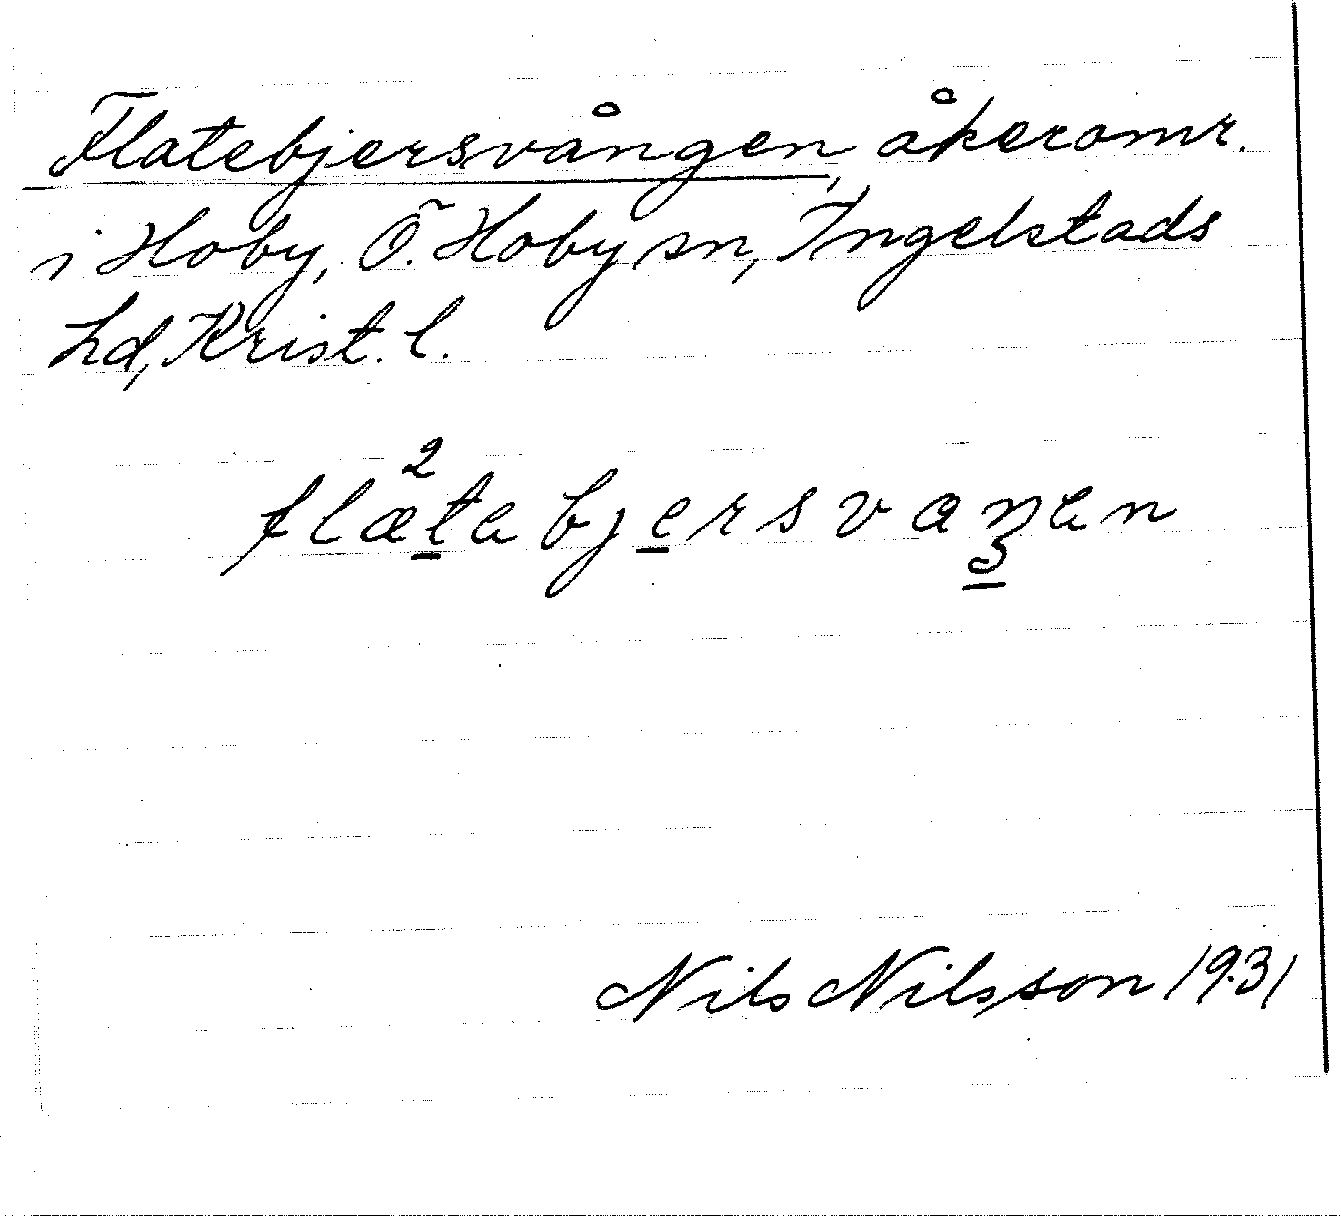 Flatebjersvången, åkeromr.
i Hoby, Ö. Hoby sn, Ingelstads
hd, Krist. l.
Nils Nilsson 1931